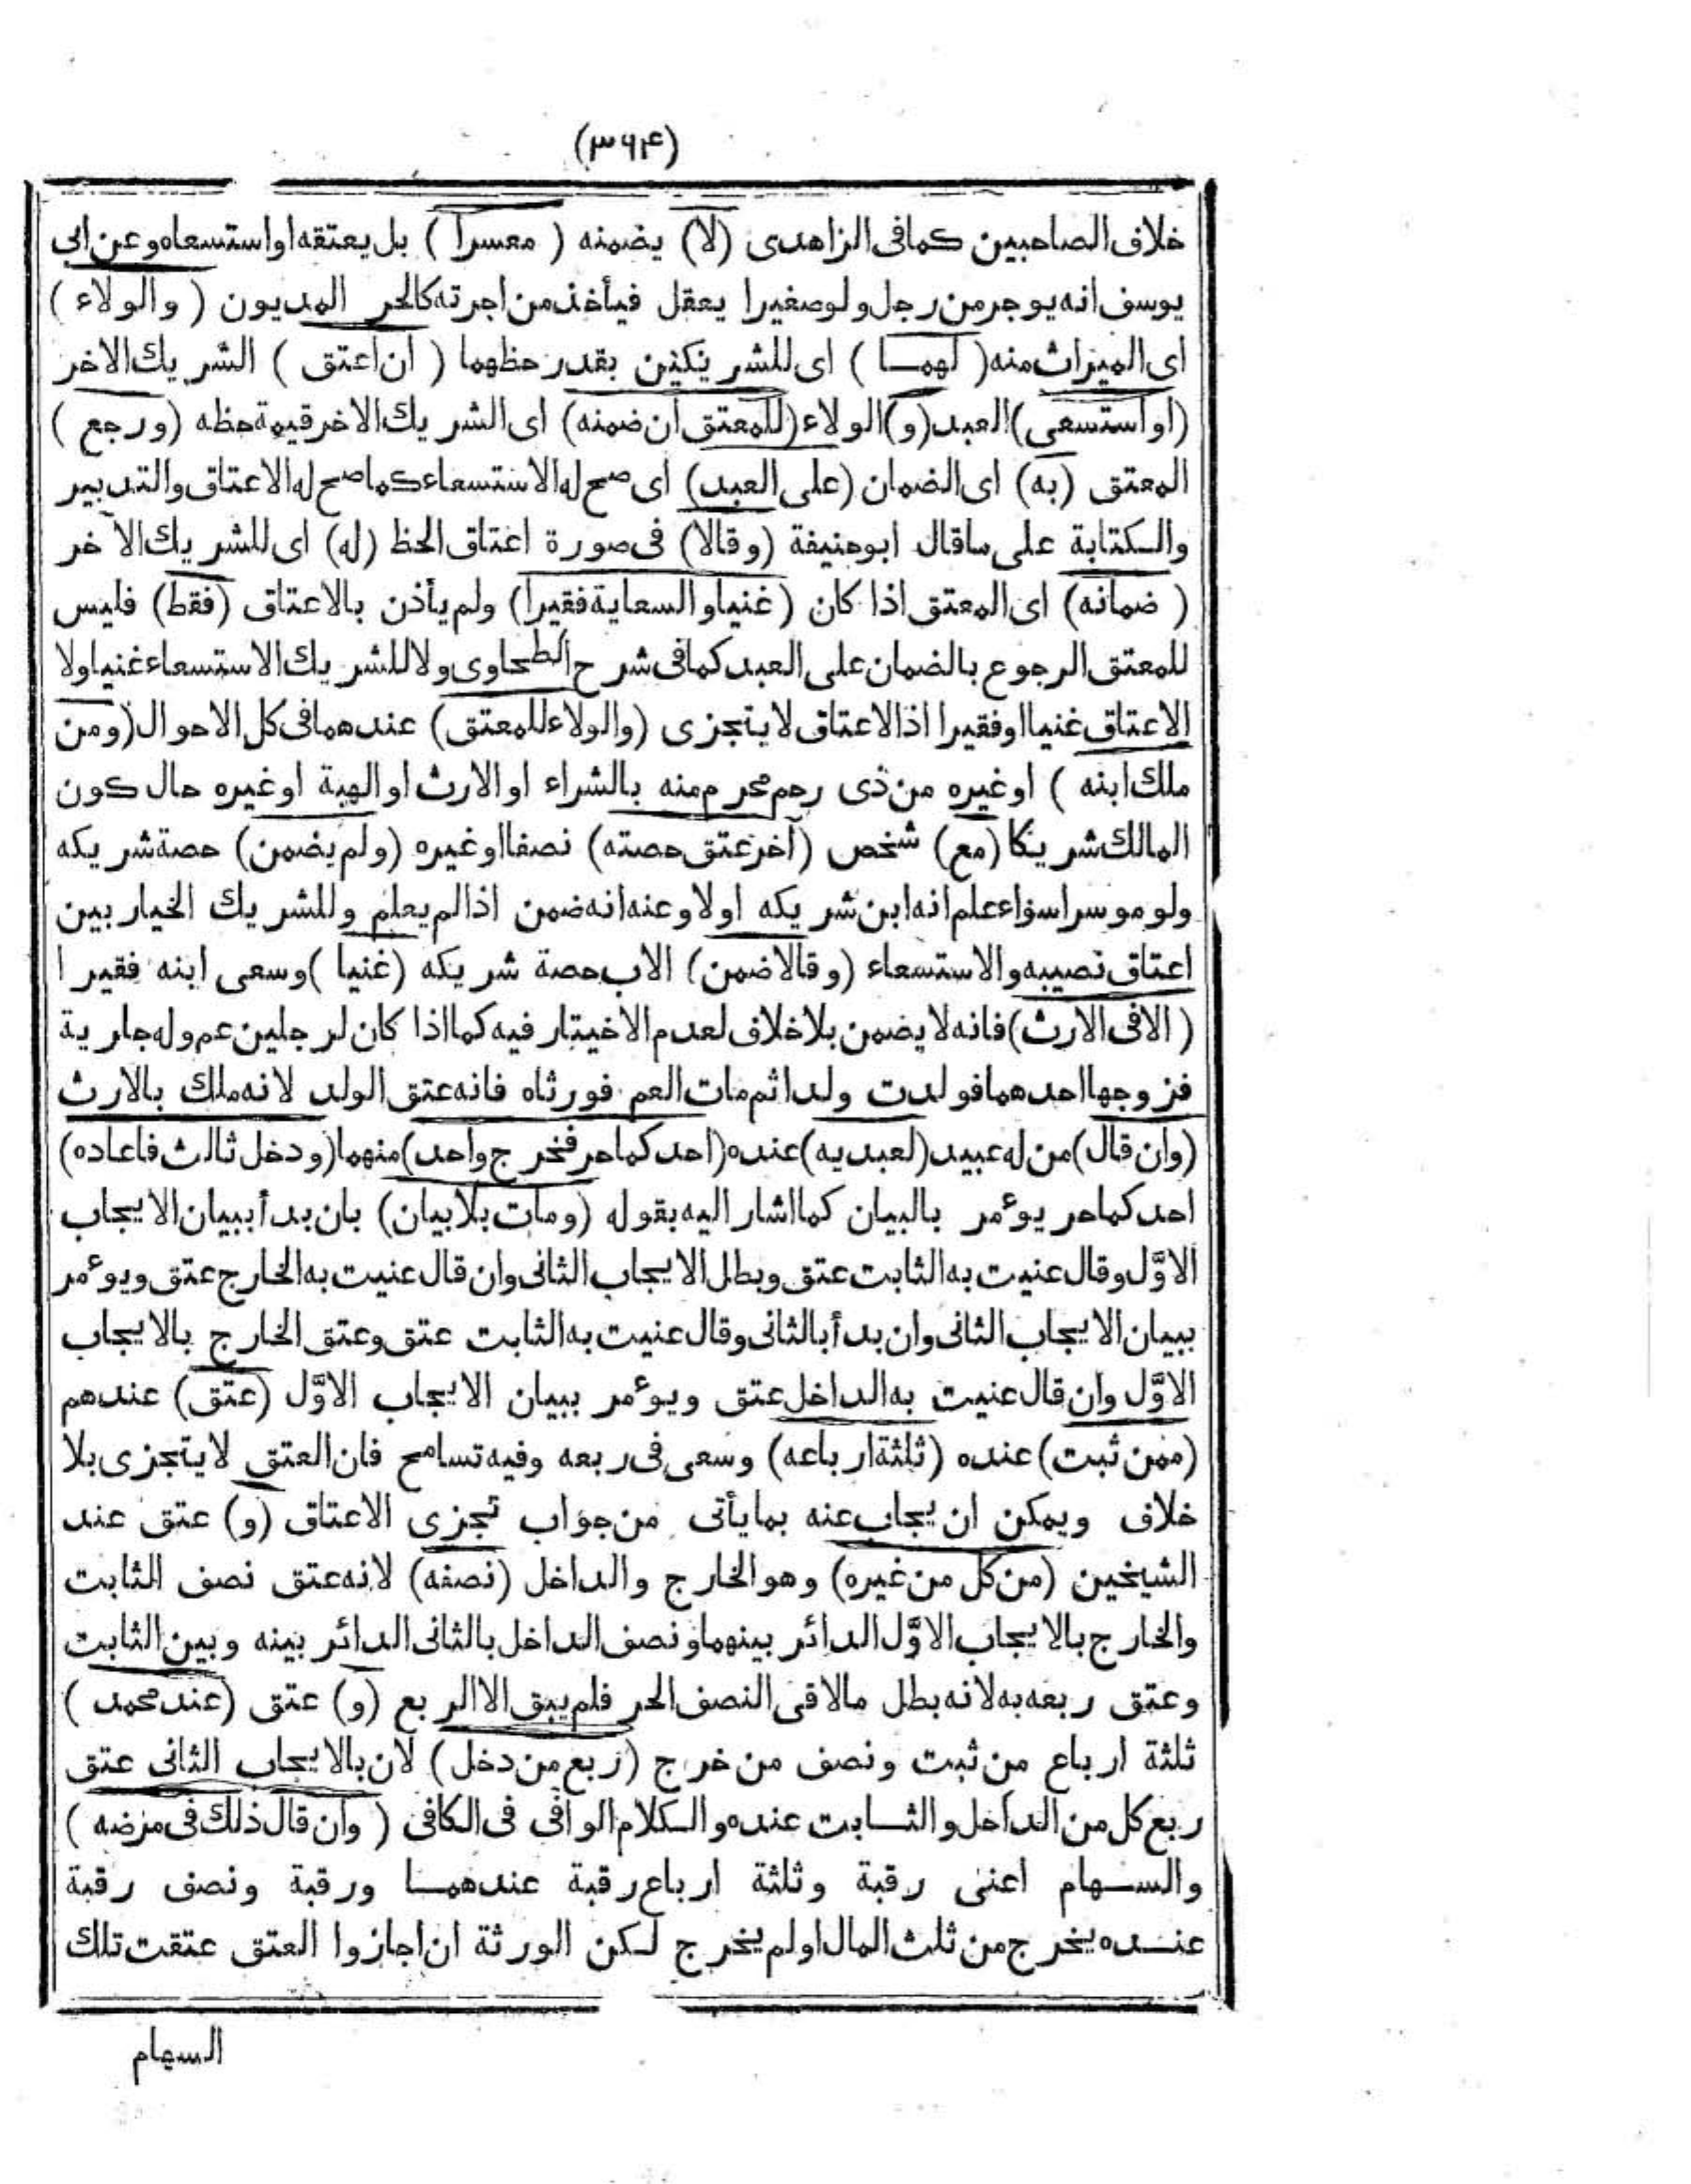 (٣٦٤)
خلاف الصاحبين كما فى الزاهدى (لا) يضمنه ( معسرا ) بل يعتقه او استسعاه وعن ابى
يوسف انه يوجر من رجل ولو صغيرا يعقل فيأخذ من اجرته كالحر المديون ( والولاء )
اى الميراث منه ( لهما ) اى للشريكين بقدر حظهما ( ان اعتق ) الشريك الاخر
(او استسعى) العبد (و) الولاء (للمعتق ان ضمنه) اى الشريك الاخر قيمة حظه (ورجع )
المعتق (به) اى الضمان (على العبد) اى صح له الاستسعاء كما صح له الاعتاق والتدبير
والكتابة على ما قال ابو حنيفة (وقالا) فى صورة اعتاق الحظ (له) اى للشريك الآخر
( ضمانه) اى المعتق اذا كان (غنيا والسعاية فقيرا) ولم يأذن بالاعتاق (فقط) فليس
للمعتق الرجوع بالضمان على العبد كما فى شرح الطحاوى ولا للشريك الاستسعاء غنيا ولا
الاعتاق غنيا او فقيرا اذ الاعتاق لا يتجزى (والولاء للمعتق) عندهما فى كل الاحوال (ومن
ملك ابنه ) او غيره من ذى رحم محرم منه بالشراء او الارث او الهبة او غيره حال كون
المالك شريكا (مع) شخص (آخر عتق حصته) نصفا او غيره (ولم يضمن) حصة شريكه
ولو موسرا سواء علم انه ابن شريكه اولا وعنه انه ضمن اذا لم يعلم وللشريك الخيار بين
اعتاق نصيبه والاستسعاء (وقالا ضمن) الاب حصة شريكه (غنيا )وسعى ابنه فقيرا
(الا فى الارث) فانه لا يضمن بلا خلاف لعدم الاختيار فيه كما اذا كان لرجلين عم وله جارية
فزوجها احدهما فولدت ولدا ثم مات العم فورثاه فانه عتق الولد لانه ملك بالارث
(وان قال) من له عبيد (لعبديه) عنده (احد كما حر فخرج واحد) منهما (ودخل ثالث فاعاده)
احد كما حر يوءمر بالبيان كما اشار اليه بقوله (ومات بلا بيان) بان بدأ ببيان الايجاب
الاوّل وقال عنيت به الثابت عتق وبطل الايجاب الثانى وان قال عنيت به الخارج عتق ويوءمر
ببيان الايجاب الثانى وان بدأ بالثانى وقال عنيت به الثابت عتق وعتق الخارج بالايجاب
الاوّل وان قال عنيت به الداخل عتق ويوءمر ببيان الايجاب الاوّل (عتق) عندهم
(ممن ثبت) عنده (ثلثة ارباعه) وسعى فى ربعه وفيه تسامح فان العتق لا يتجزى بلا
خلاف ويمكن ان يجاب عنه بما يأتى من جواب تجزى الاعتاق (و) عتق عند
الشيخين (من كل من غيره) وهو الخارج والداخل (نصفه) لانه عتق نصف الثابت
والخارج بالايجاب الاوّل الدائر بينهما ونصف الداخل بالثانى الدائر بينه وبين الثابت
وعتق ربعه به لانه بطل ما لاقى النصف الحر فلم يبق الا الربع (و) عتق (عند محمد )
ثلثة ارباع من ثبت ونصف من خرج (ربع من دخل) لان بالايجاب الثانى عتق
ربع كل من الداخل والثابت عنده والكلام الوافى فى الكافى ( وان قال ذلك فى مرضه )
والسهام اعنى رقبة وثلثة ارباع رقبة عندهما ورقبة ونصف رقبة
عنده يخرج من ثلث المال او لم يخرج لكن الورثة ان اجازوا العتق عتقت تلك
السهام